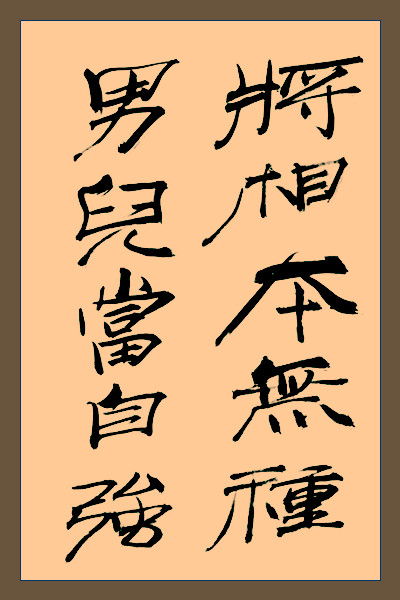 將相本無種
男兒當自強